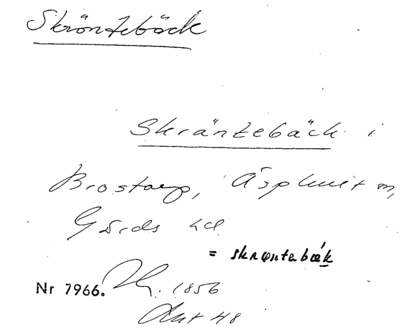 Skröntebäck
Skräntebäck i
Brostorp, Äsphult sn,
Gärds hd
= skræntabæk
Nr 7966. 1856